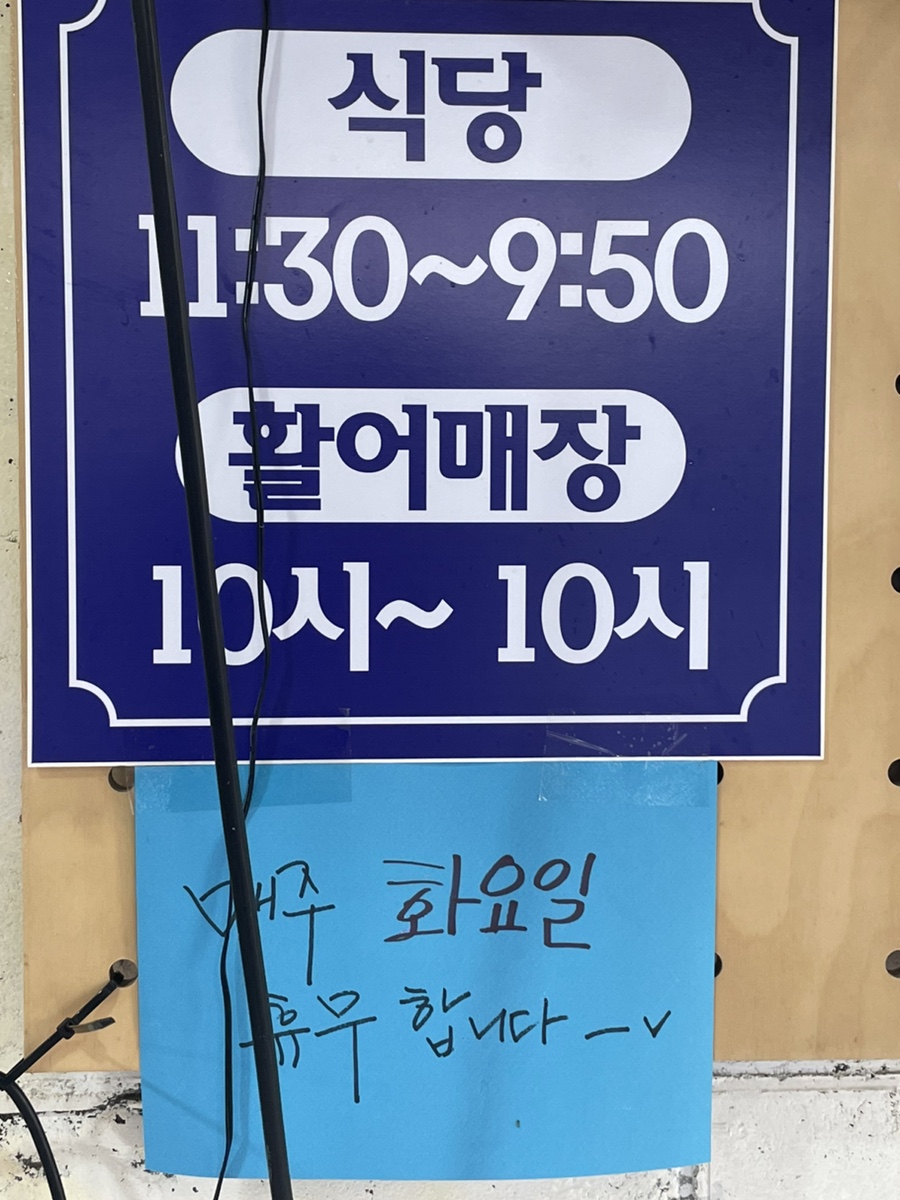 식당
11:30~9:50
활어매장
10시~ 10시
매주 화요일
휴무 합니다